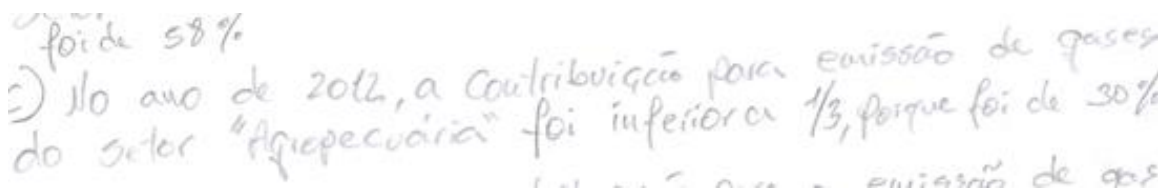 foi de 58%
c) No ano de 2012, a Contribuição para emissão de gases
do setor "Agropecuária" foi inferior a 1/3, porque foi de 30%
emissão de gas